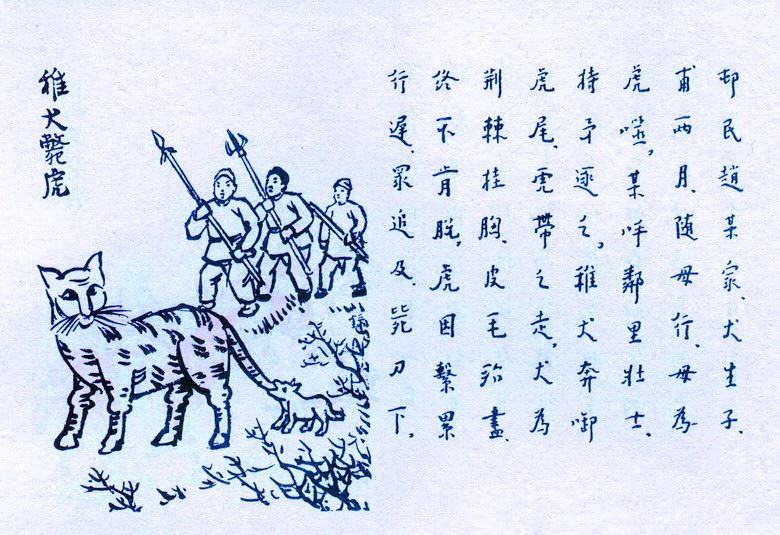 邨民趙某家、犬生子、
甫兩月、隨母行、母為
虎噬。某呼鄰里壯士、
持矛逐之。稚犬奔啣
虎尾、虎帶之走。犬為
荆棘挂胸、皮毛殆盡、
終不肯脱。虎因繫累
行遲、眾追及、毙刃下。
稚犬斃虎